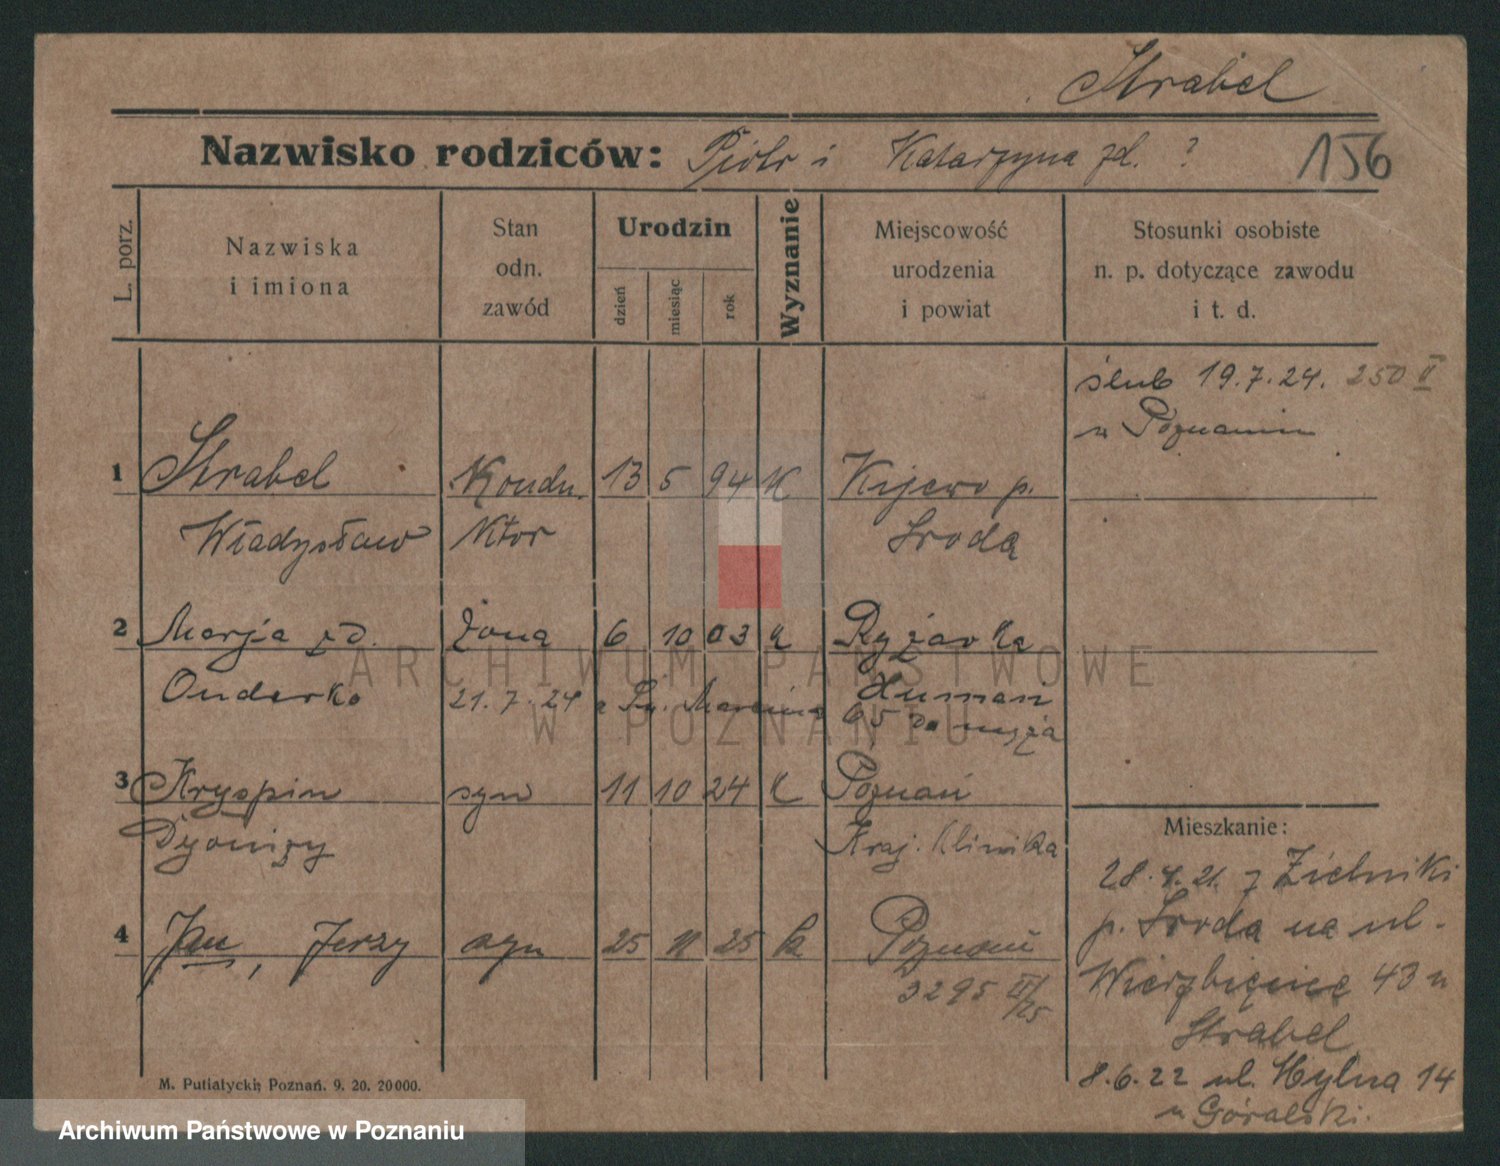 Strabel
Nazwisko rodziców: Piotr i Katarzyna zd. ?
156
L. porz.
Nazwiska
i imiona
Stan
odn.
zawód
Urodzin
dzień
miesiąc
rok
Wyznanie
Miejscowość
urodzenia
i powiat
Stosunki osobiste
n. p. dotyczące zawodu
i t. d.
ślub 19.7.24. 250 II
w Poznaniu
1 Strabel Kondu. 13 5 94 K Kijewo p.
Władysław ktor Środa
2 Marja zd. żona 6 10 03 K
Onderko 21.7.24 Human
3 Kryspin syn 11 10 24 K Poznań
Dyonizy Kraj. Klinika
Mieszkanie:
28.4.21. z Zielniki
4 Jan, Jerzy syn 25 11 25 k Poznań
p. Środa na ul.
3295 III/25
Wierzbięcice 43 u
Strabel
8.6.22 ul. Hylna 14
u Góralski.
M. Putiatycki, Poznań. 9. 20. 20000.
ARCHIWUM PAŃSTWOWE
W POZNANIU
Archiwum Państwowe w Poznaniu